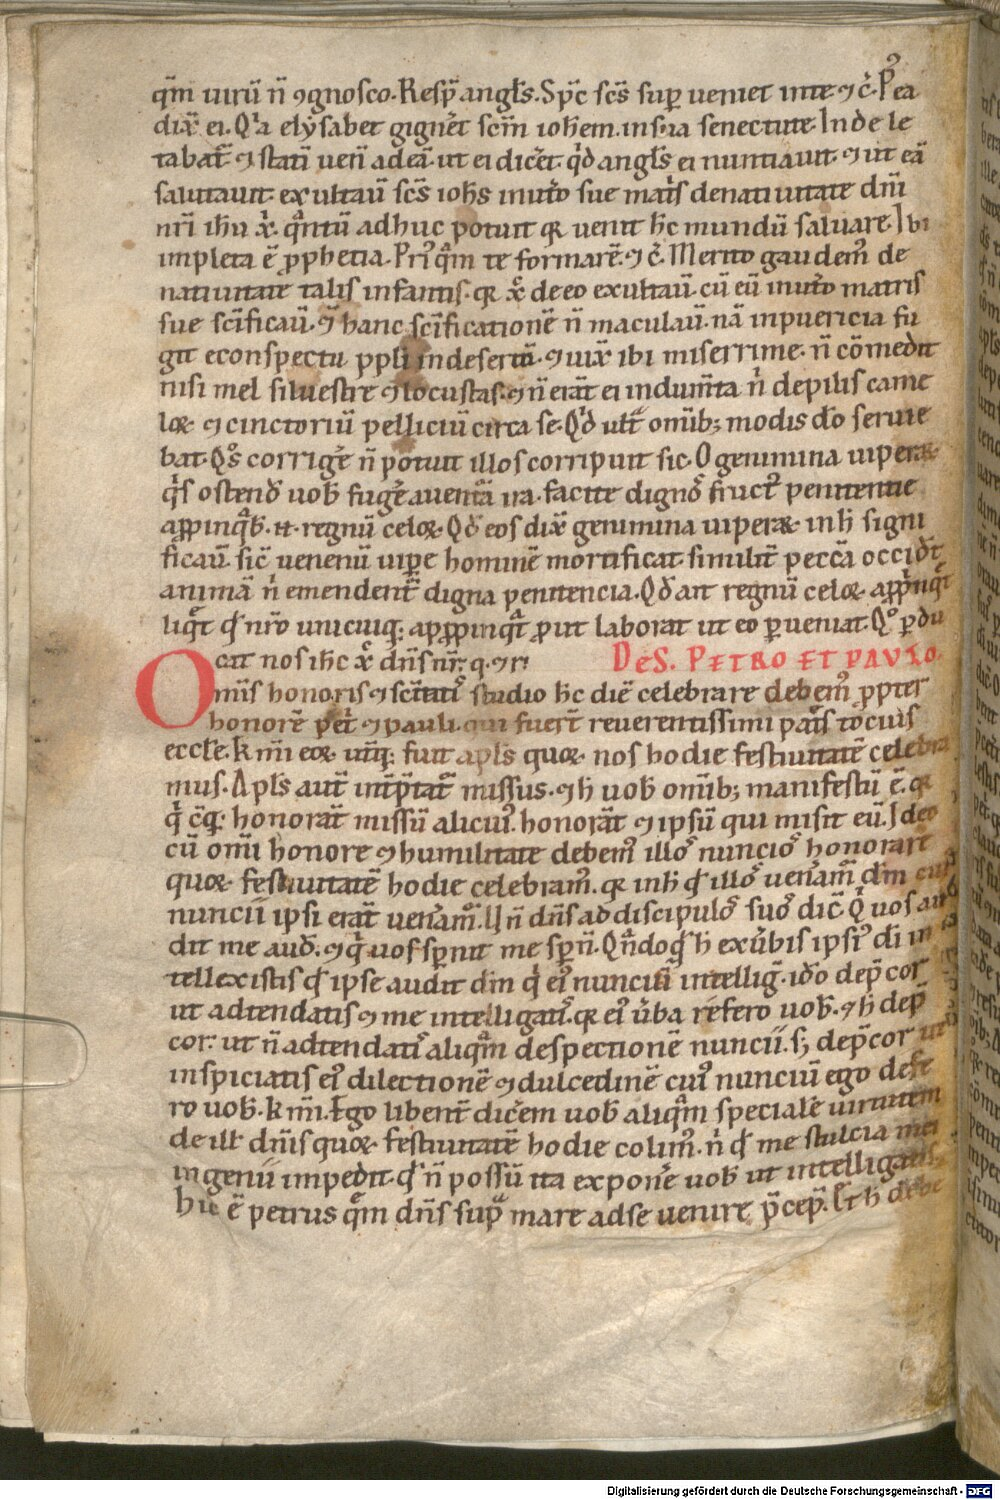 qm̄ uirū n̄ ꝯgnosco. Resp̄. angl̄s. Sp̄c sc̄s suꝑ ueniet in te ⁊ c̄. Postea
dix̄ ei. Qͥa elẏsabet gignet̄ scm̄ ioh̄em. in sua senectute. Inde le
tabat̄ ⁊ statī uen̄ ad eā. ut ei dicet̄. qd̄ angl̄s ei nuntiauit. ⁊ ut eā
salutauit. exultaū sc̄s ioh̄s in utͦo sue matͥs de natiuitate dn̄i
nr̄i ih̄u xͥ. qͣntū adhuc potuit qꝛ uenit h̄c mundū saluare. Ibi
impleta ē ꝓphetia. Priꝰqͣm te formarē. ⁊ c̄. Merito gaudemꝰ de
natiuitate talis infantis. qꝛ xͦ de eo exultaū. cū eū in utͦo matris
sue sc̄ificaū. ⁊ hanc sc̄ificationē n̄ maculaū. nā in puericia fu
git e conspectu ppl̄i in desertū. ⁊ uix̄ ibi miserrime. n̄ cōmedit
nisi mel siluestre ⁊ locustas. ⁊ n̄ erāt ei indum̄ta nͥ de pilis came
loꝝ ⁊ cinctoriū pelliciū circa se. Qͥd ult̄ᵃ omīb; modis dō seruie
bat. Qͦs corrigē n̄ potuit illos corripuit sic. O genimina uiperaꝝ
qͥs ostend̄ uob̄ fugē a uent̄ᵃ ira. facite dignos fructꝰ penitentie
aꝓpinqͣb̄. n̄. regnū celoꝝ. Qd̄ eos dix̄ genimina uiperaꝝ in h̄ signi
ficaū. sic̄ uenenū uiꝑe hominē mortificat. similit̄ pecc̄a occid̄t
animā nͥ emendent̄ᵃ digna penitencia. Qd̄ ait regnū celoꝝ aꝓpinqͣt
liqͦt qd̄ nr̄o unicuiqꝫ aꝓpinqͣt ꝓut laborat ut eo ꝑueniat. Qͦ ꝑdu
cat nos ih̄c xͦ dn̄s nr̄. q. ⁊ r̄
DE S. PETRO ET PAVLO.
Omīs honoris ⁊ sc̄itatꝰ studio h̄c diē celebrare debemꝰ ꝓpter
honorē petͥ ⁊ pauli. qui fuer̄t reuerentissimi pat̄s tocius
eccl̄e. k̄mi eoꝝ utͥqꝫ fuit apl̄s quoꝝ nos hodie festiuitatē celebra
mus. Apl̄s aut̄ int̄p̄tat̄ᵃ missus. ⁊ h̄ uob̄ omīb; manifestū ē. qꝛ
qͥcūqꝫ honorat̄ missū alicuiꝰ. honorat̄ ⁊ ipsū qui misit eū. Ideo
cū om̄i honore ⁊ humilitate debemꝰ illos nuncios honorare
quoꝝ festiuitatē hodie celebramꝰ. qꝛ in h̄ qd̄ illos uen̄amꝰ dn̄m cuiꝰ
nuncii ipsi erāt uen̄amꝰ. Un̄ dn̄s ad discipulos suos dic̄. Qͥ uos au
dit me aud̄. ⁊ qͥ uos spernit me spern̄. Qn̄doqͥd h̄ ex ūbis ipsiꝰ dn̄i in
tellexistis qd̄ ipse audit dn̄m qͥ eiꝰ nunciū intellig̅. ido dep̄cor
ut adtendatis ⁊ me intelligatꝰ. qꝛ eiꝰ ūba refero uob̄. ⁊ h̄ dep̄
cor. ut n̄ adtendatꝰ aliqͣm despectionē nuncii. s; dep̄cor ut
inspiciatis eiꝰ dilectionē ⁊ dulcedinē cuiꝰ nunciū ego defe
ro uob̄. k̄mi. Ego libent̄ dicēm uob̄ aliqͣm specialē uirtutem
de ill̄ dn̄is quoꝝ festiuitatē hodie colimꝰ. nͥ qd̄ me stulcia mei
ingenii impedit. qd̄ n̄ possū ita exponē uob̄ ut intelligatis.
Hic ē petrus qͣm dn̄s supͣ mare ad se uenire p̄cep̄. Et h̄ debe
Digitalisierung gefördert durch die Deutsche Forschungsgemeinschaft - DFG